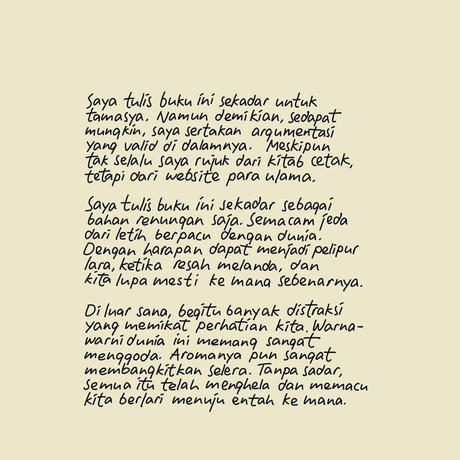 Saya tulis buku ini sekadar untuk
tamasya. Namun demikian, sedapat
mungkin, saya sertakan argumentasi
yang valid di dalamnya. Meskipun
tak selalu saya rujuk dari kitab cetak,
tetapi dari website para ulama.
Saya tulis buku ini sekadar sebagai
bahan renungan saja. Semacam jeda
dari letih berpacu dengan dunia.
Dengan harapan dapat menjadi pelipur
lara, ketika resah melanda, dan
kita lupa mesti ke mana sebenarnya.
Di luar sana, begitu banyak distraksi
yang memikat perhatian kita. Warna-
warni dunia ini memang sangat
menggoda. Aromanya pun sangat
membangkitkan selera. Tanpa sadar,
semua itu telah menghela dan memacu
kita berlari menuju entah ke mana.